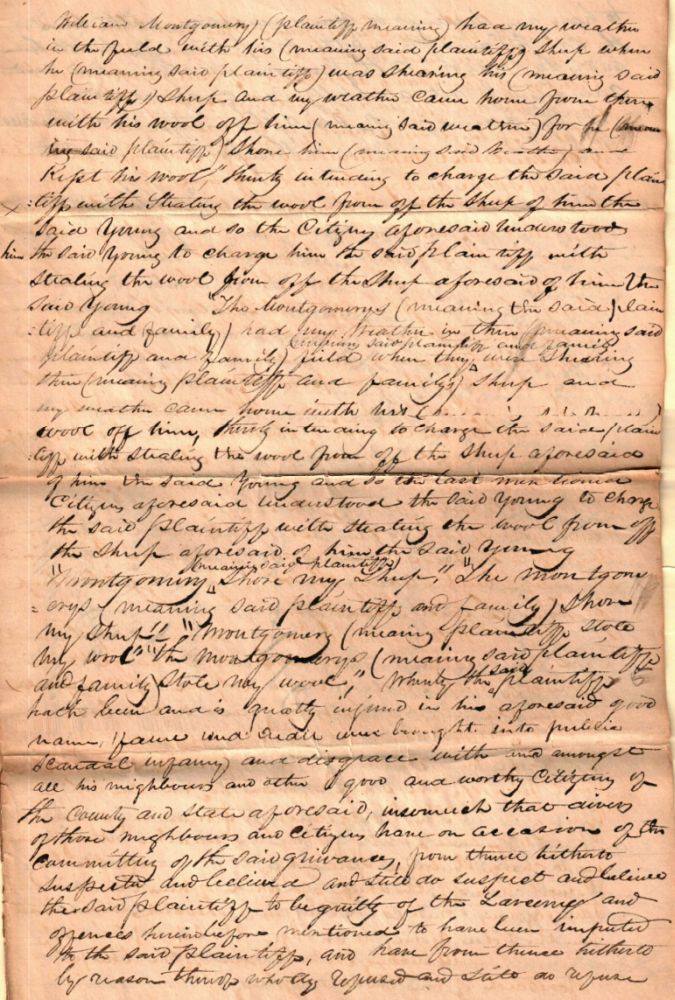 William Montgomery) (plaintiff meaning) had my weather
in the field with his (meaning said plaintiff) Sheep when
he (meaning said plaintiff) was shearing his (meaning said
plaintiff) Sheep and my weather came home from there
with his wool off him (meaning said weather) for he (mean
ing said plaintiff) Shore him (meaning said Weather) and
Kept his wool," thereby intending to charge the said plain
:tiff with Stealing the wool from off the Sheep of him the
said Young and so the Citizens aforesaid understood
him the said Young to charge him the said plaintiff with
stealing the wool from off the Sheep aforesaid of him the
said Young "The Montgomerys (meaning the said plain
:tiff and family) had my Weather in their (meaning said
plaintiff and family) field when they (meaning said plaintiff and family) were Shearing
their (meaning plaintiff and family) Sheep and
my weather came home with his
wool off him, thereby intending to charge the said plain
:tiff with stealing the wool from off the Sheep aforesaid
of him the said Young and so the last mentioned
Citizens aforesaid understood the said Young to charge
the said plaintiff with stealing the wool from off
the Sheep aforesaid of him the said Young
"Montgomery (meaning said plaintiff) Shore my Sheep," "The Montgom
=erys (meaning said plaintiff and family) Shore
my Sheep" "Montgomery (meaning plaintiff stole
my wool" "the Montgomerys (meaning said plaintiff
and family stole my wool," Whereby the said plaintiff
hath been and is greatly injured in his aforesaid good
name, fame and brought into public
scandal infamy and disgrace with and amongst
all his neighbours and other good and worthy Citizens of
the County and State aforesaid, insomuch that divers
of those neighbours and Citizens have on occasion of the
Committing of the said grievances, from thence hitherto
suspected and believed and still do suspect and believe
the said plaintiff to be guilty of the Larceny and
offences hereinbefore mentioned to have been imputed
to the said plaintiff, and have from thence hitherto
by reason thereof wholly refused and still do refuse